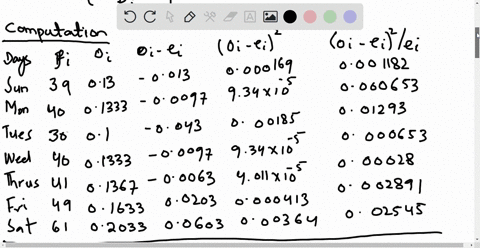 Computation
Days fi oi oi - ei (oi - ei)² (oi - ei)²/ei
Sun 39 0.13 -0.013 0.000169 0.001182
Mon 40 0.1333 -0.0097 9.34×10⁻⁵ 0.000653
Tues 30 0.1 -0.043 0.00185 0.01293
Wed 40 0.1333 -0.0097 9.34×10⁻⁵ 0.000653
Thrus 41 0.1367 -0.0063 4.011×10⁻⁵ 0.00028
Fri 49 0.1633 0.0203 0.000413 0.002891
Sat 61 0.2033 0.0603 0.00364 0.02545